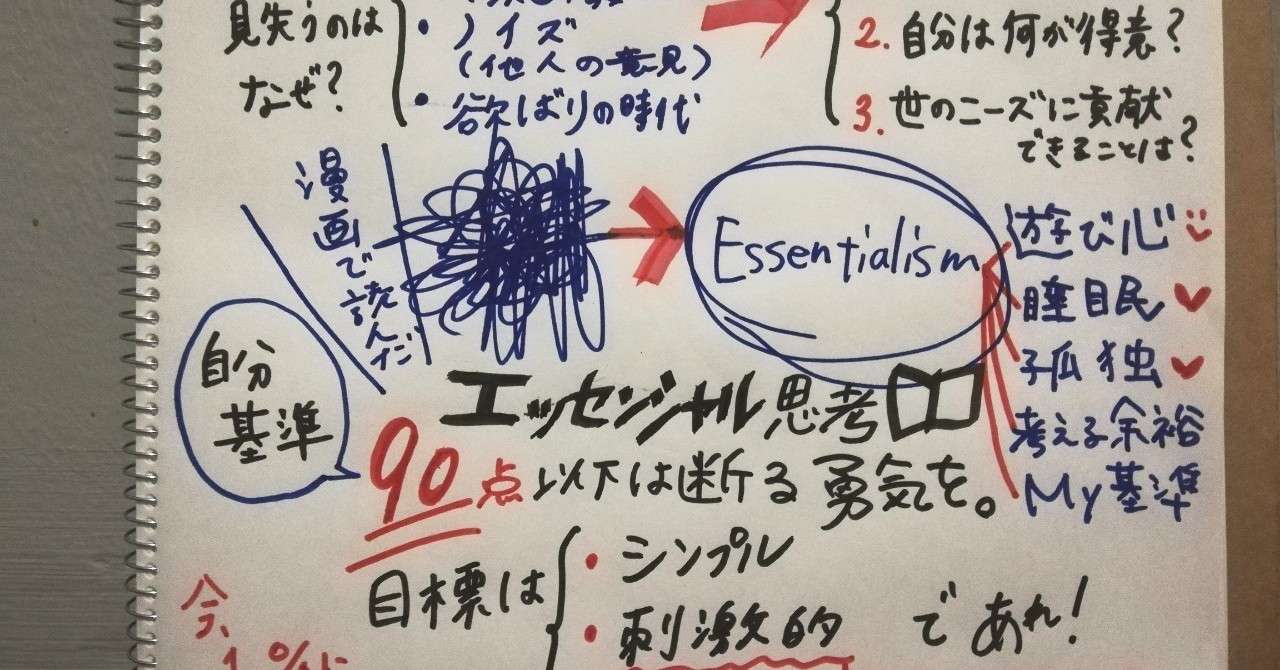 見失うのは
なぜ?
・ノイズ
(他人の意見)
・欲ばりの時代
2. 自分は何が得意?
3. 世のニーズに貢献
できることは?
漫画で読んだ
Essentialism
遊び心
睡眠
孤独
考える余裕
My基準
自分
基準
エッセンシャル思考
90点以下は断る勇気を。
目標は
・シンプル
・刺激的
であれ!
今、